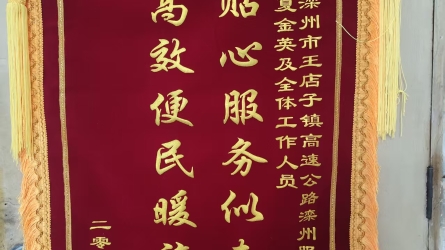 滦州市王店子镇高速公路滦州
夏金英及全体工作人员
贴心服务似
高效便民暖
二零